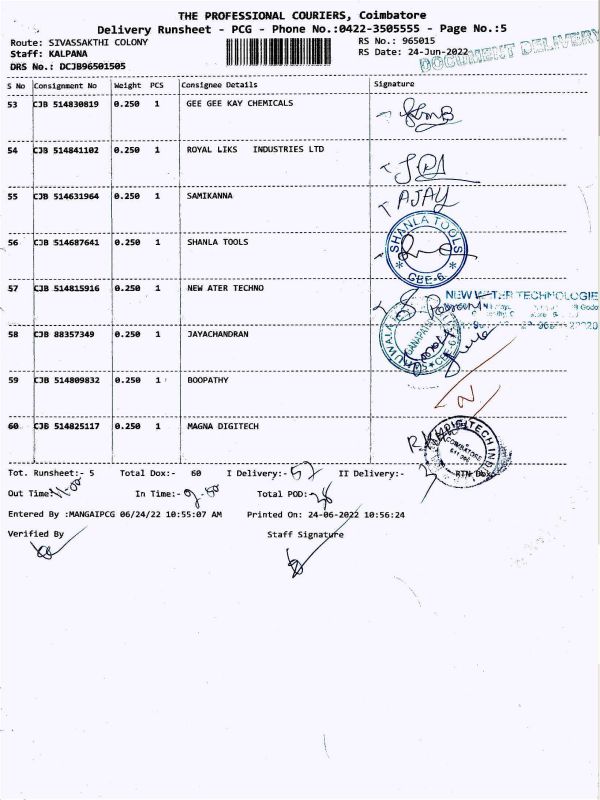 THE PROFESSIONAL COURIERS, Coimbatore
Delivery Runsheet - PCG - Phone No.:0422-3505555 - Page No.:5
Route: SIVASSAKTHI COLONY RS No.: 965015
Staff: KALPANA RS Date: 24-Jun-2022
DOCUMENT DELIVERY
DRS No.: DCJB96501505
S No Consignment No Weight PCS Consignee Details Signature
53 CJB 514830819 0.250 1 GEE GEE KAY CHEMICALS
54 CJB 514841102 0.250 1 ROYAL LIKS INDUSTRIES LTD
55 CJB 514631964 0.250 1 SAMIKANNA AJAY
56 CJB 514687641 0.250 1 SHANLA TOOLS
SHANLA TOOLS
CBE-6
57 CJB 514815916 0.250 1 NEW ATER TECHNO
NEW WATER TECHNOLOGIE
GANAPATHY
CBE-6
58 CJB 88357349 0.250 1 JAYACHANDRAN
59 CJB 514809832 0.250 1 BOOPATHY
N
60 CJB 514825117 0.250 1 MAGNA DIGITECH
DIGITECH INDIA
COIMBATORE
641 006
Tot. Runsheet:- 5 Total Dox:- 60 I Delivery:- 57 II Delivery:- RTN Dox
Out Time:- 11-00 In Time:- 9-00 Total POD:- 28
Entered By :MANGAIPCG 06/24/22 10:55:07 AM Printed On: 24-06-2022 10:56:24
Verified By Staff Signature